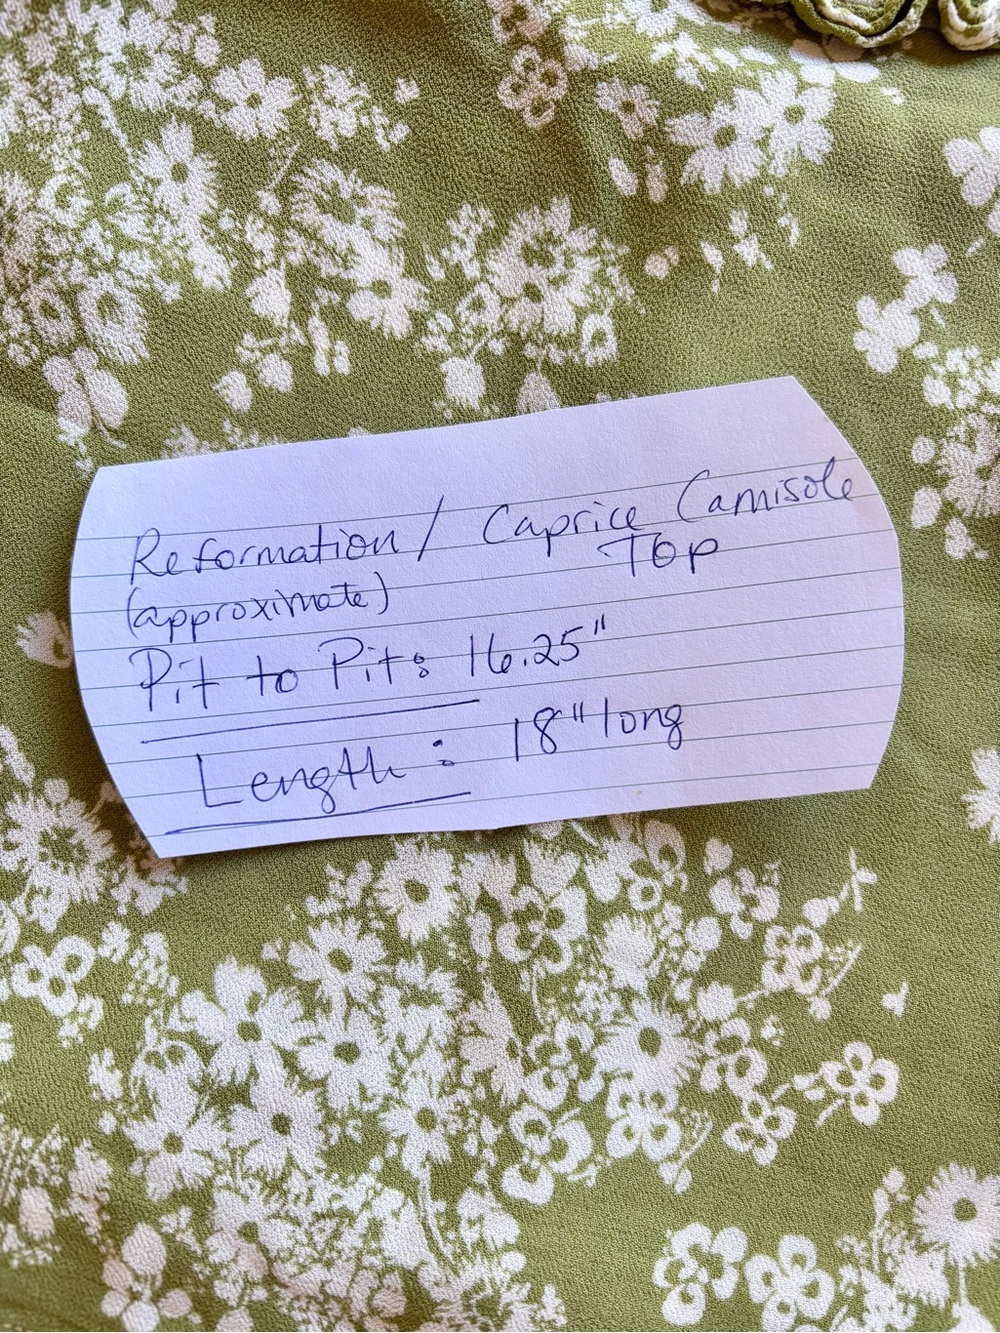 Reformation / Caprice Camisole
Top
(approximate)
Pit to Pit: 16.25"
Length: 18" long